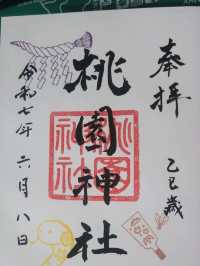 奉拝
乙巳歳
桃園神社
令和七年六月八日